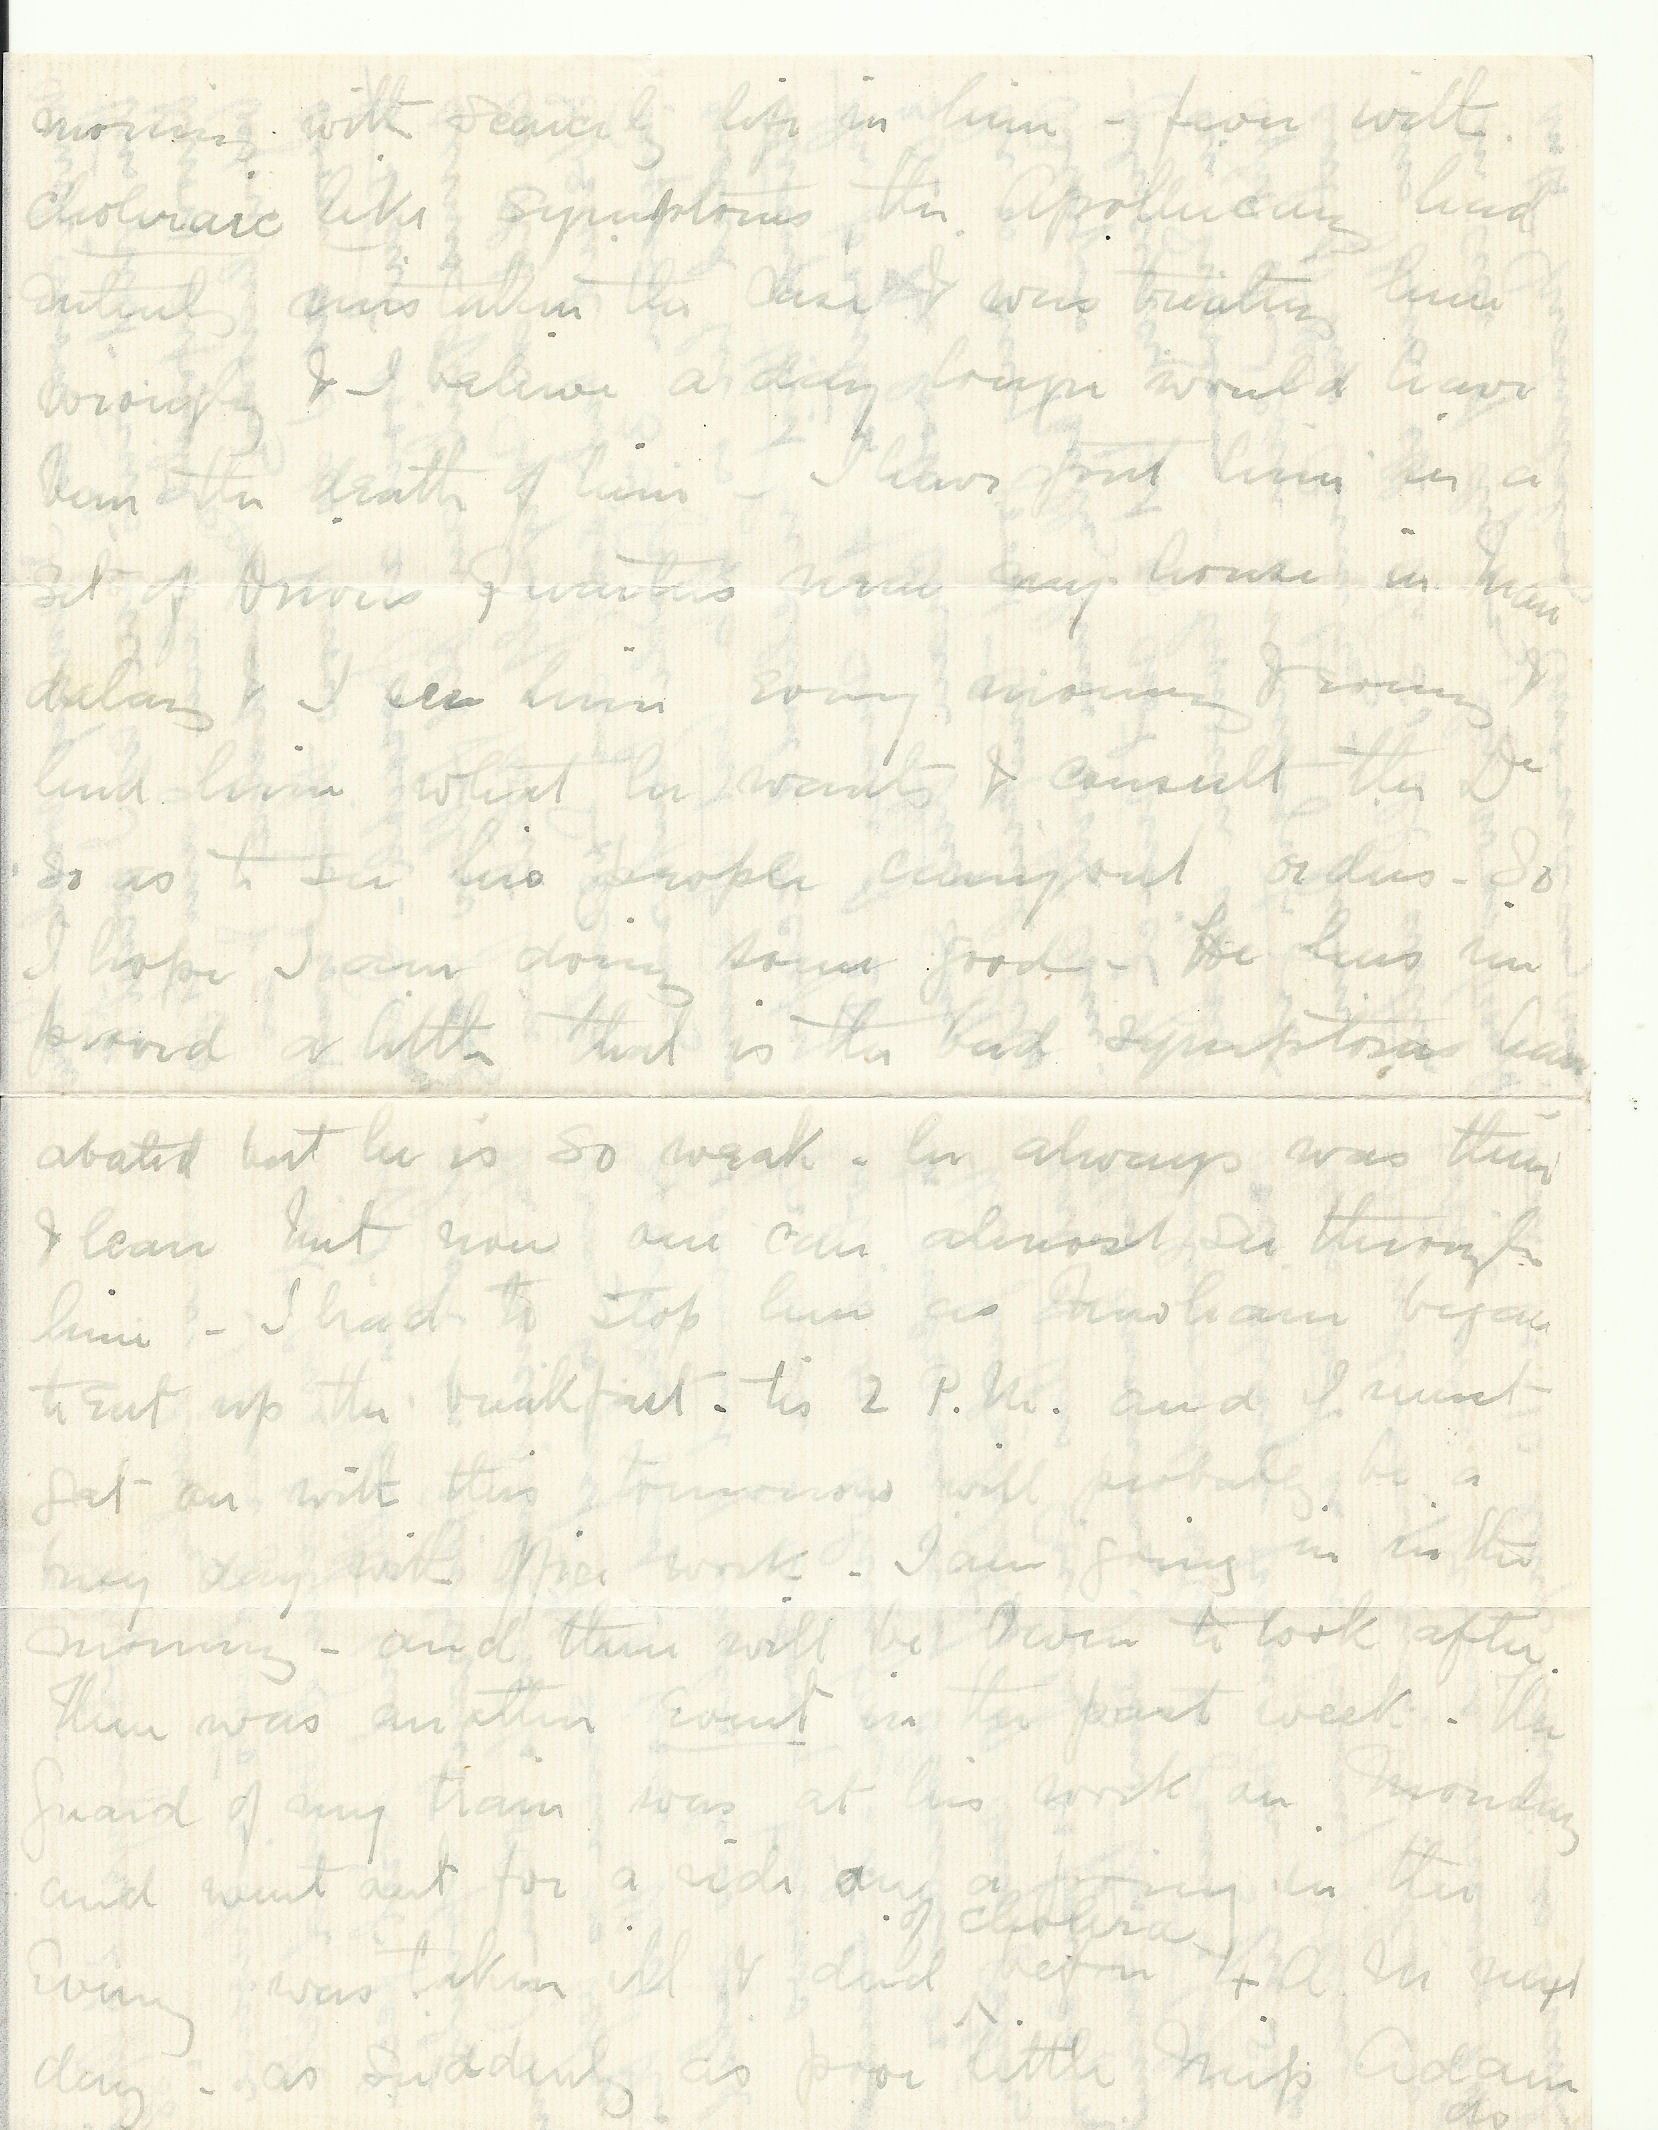 morning with scarcely life in him - fever with
choleraic like symptoms, the Apothecary had
entirely mistaken the case & was treating him
wrongly & I believe a day longer would have
been the death of him - I have got him in a
set of Drivers quarters near my house in Man
dalay & I see him every morning & evening &
lend him what he wants & consult the Dr
so as to see his people carry out orders - So
I hope I am doing some good - He has im
proved a little that is the bad symptoms have
abated but he is so weak - he always was thin
& lean but now one can almost see through
him - I had to stop here as began
to eat up the breakfast - tis 2 P.M. and I must
get on with this tomorrow will probably be a
busy day with office work - I am going in in the
morning - and there will be to look after.
There was another Event in the past week - the
Guard of my train was at his work on Monday
and went out for a ride on a pony in the
Evening was taken ill & died of cholera before 4 A M next
day - as suddenly as poor little Miss Adam
do